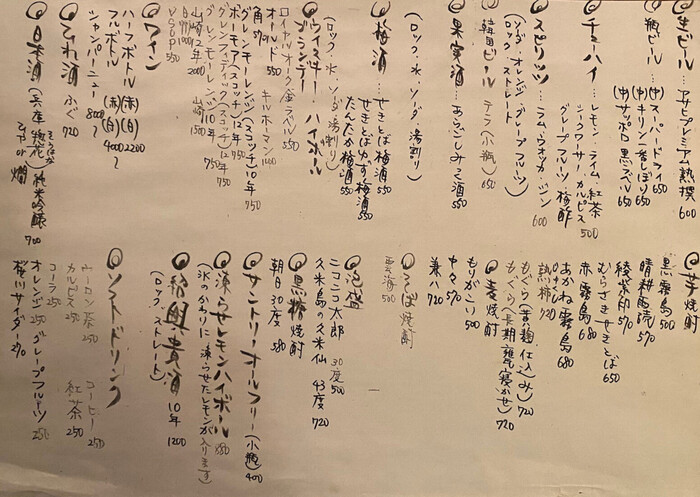 生ビール…アサヒプレミアム熟撰 600
瓶ビール…(中)スーパードライ 650
(中)キリン一番しぼり 650
(中)サッポロ黒ラベル 650
チューハイ…レモン・ライム・紅茶
シークワーサー・カルピス
グレープフルーツ・梅酢 500
スピリッツ…ラム・ウォッカ・ジン 600
(ソーダ・オレンジ・グレープフルーツ
ロック・ストレート)
韓国ビール テラ(小瓶) 650
果実酒…あらごしみかん酒 550
(ロック・水・ソーダ・湯割り)
梅酒…せきとば梅酒 550
せきとばゆず梅酒 550
たんたか梅酒 550
(ロック・水・ソーダ・湯割り)
ウイスキー・ハイボール
ブランデー
ロイヤルオーク金ラベル 550
オールド 550 キルホーマン 1400
角 570
ボウモア(スコッチ)12年 850
グレンモーレンジ(スコッチ)10年 750
グレンフィディック(スコッチ)12年 750
山崎12年 2000 山崎 1500
白州 1000
VSOP 550
ワイン
ハーフボトル (赤)(白) 2200
フルボトル (赤)(白) 4000〜
シャンパーニュ 8000〜
ひれ酒 ふぐ 720
日本酒 (兵庫 惣花) 純米吟醸 700
そうはな
冷や or 燗
芋焼酎
黒霧島 500
晴耕雨読 570
綾紫印 570
むらさきせきとば 650
赤霧島 680
あかね霧島 680
熟柿 720
もぐら(黄麹仕込み) 720
もぐら(長期甕寝かせ) 720
麦焼酎
もりがこい 500
中々 570
兼八 720
そば焼酎
雲海 500
泡盛
ニコニコ太郎 30度 500
久米島の久米仙 43度 720
黒糖焼酎
朝日 30度 580
サントリー・オールフリー(小瓶) 400
凍らせレモンハイボール 550
(氷のかわりに凍らせたレモンが入ります)
稲毋貴酒 10年 1200
(ロック・ストレート)
ソフトドリンク
ウーロン茶 250 コーヒー 250
カルピス 250 紅茶 250
コーラ 250
オレンジ 250 グレープフルーツ 250
桜川サイダー 270